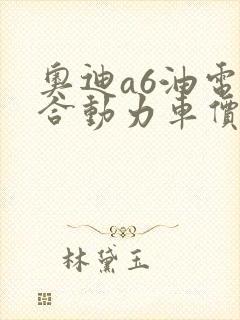 奧迪a6油電
合動力車價
林黛玉